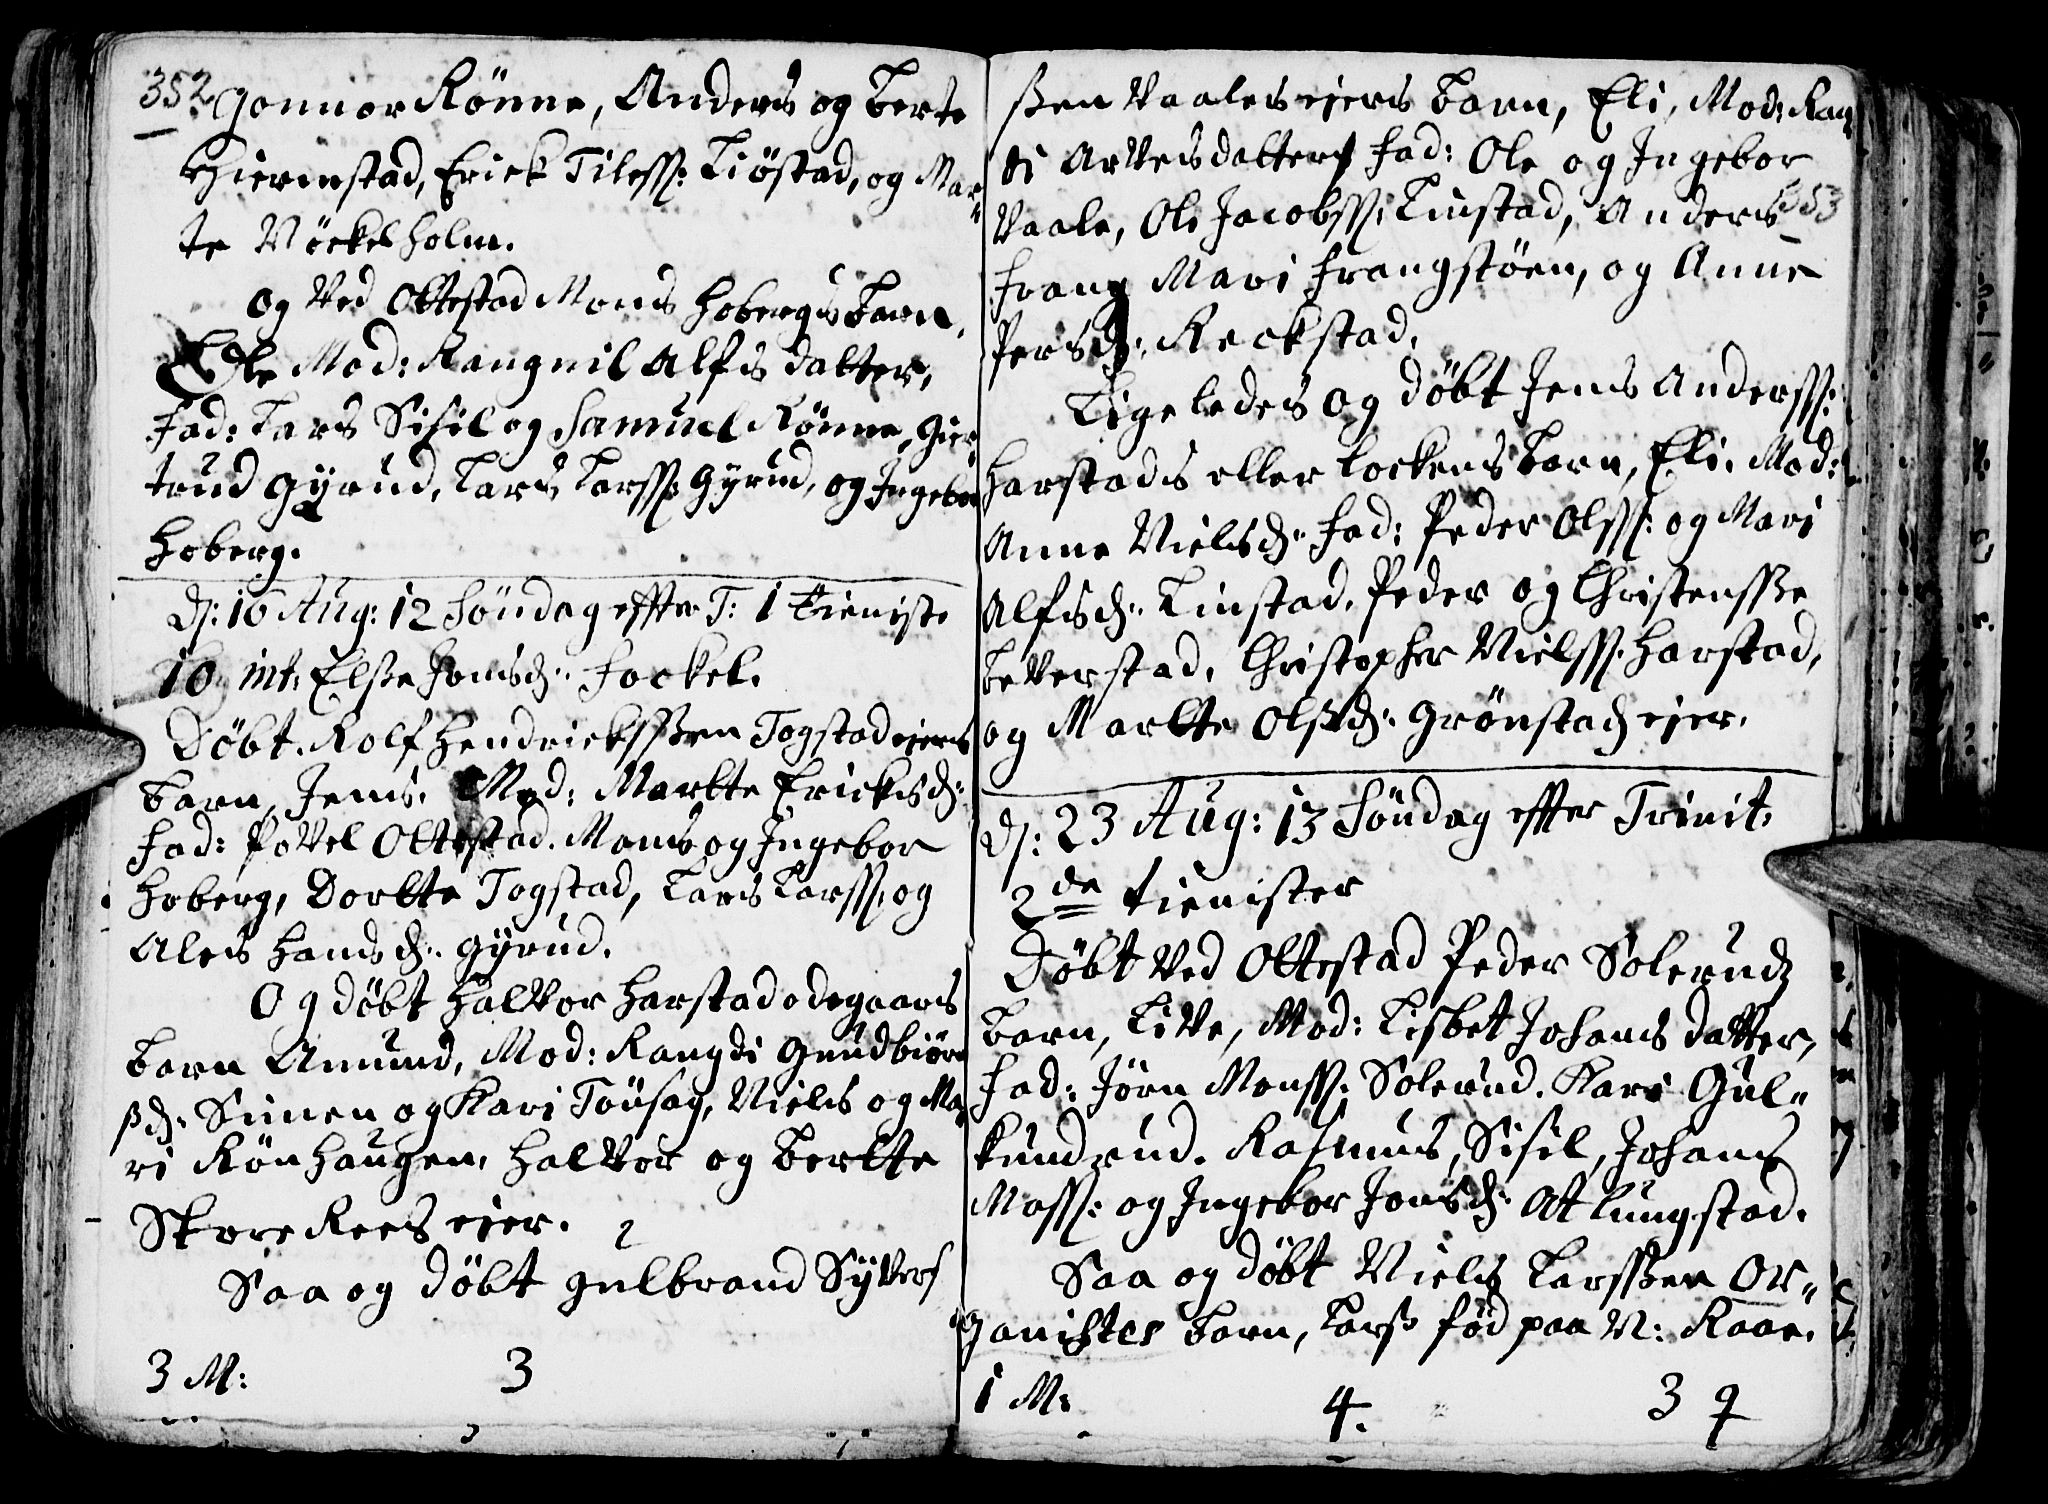 352 Gonnor Rönne, Anders og Berte
Hiermstad, Erick Tilesß: Liöstad, og Mar¬
te Nöckelholm.
og ved Ottestad Mons Hobergs barn,
Ole Mod: Rangnil Alfis datter,
Fad: Lars Sisil og Samuel Rönne, Gier
trud Gÿrud, Lars Larsß: Gÿrud, og Ingebor
Hoberg.
D: 16 Aug: 12 Söndag effter T: 1 tieniste
10 int. Elße Jonsd: Fockel.
Döbt. Rolf Hendricksßen Togstadeiers
barn, Jens. Mod: Marthe Ericksd:
Fad: Povel Ottestad. Mons og Ingebor
Hoberg, Dorthe Togstad, Lars Larsß: og
Ales Hansd: Gÿrud.
Og döbt Halvor Harstadødegaards
barn Amund, Mod: Rangdi Gundbiörn
ßd: Simen og Kari Töüsag, Niels og Ma
ri Rönhaugen, Halvor og Berthe
Skore Rees eier.
Saa og döbt Gulbrand Sÿvers
3 M: 3
ßen Vaaleseiers barn, Eli, Mod: Rang
di Arvesdatter Fad: Ole og Ingebor
353
Vaale, Ole Jacobsß: Linstad, Anders
Frang Mari Frangstöen, og Anne
Persd: Reckstad.
Ligeledes og döbt Jens Andersß:
Harstads eller Lockens barn, Eli. Mod:
Anne Nielsd: Fad: Peder Olsß: og Mari
Alfisd: Linstad, Peder og Christensße
Beverstad, Christopher Nielsß: Harstad,
og Marthe Olsßd: Grönstad eier.
D: 23 Aug: 13 Söndag effter Trinit:
2de tienister
Döbt ved Ottestad Peder Soleruds
barn, Live, Mod: Lisbet Johans datter,
Fad: Jörn Monsß: Solerud. Kari Gul¬
kundrud. Rasmus, Sisil, Johans
Mosß: og Ingebor Jonsd: At Lungstad.
Saa og döbt Niels Larsßen Or¬
ganistes barn, Larß föd paa N: Kaae.
1 M: 4. 3 9